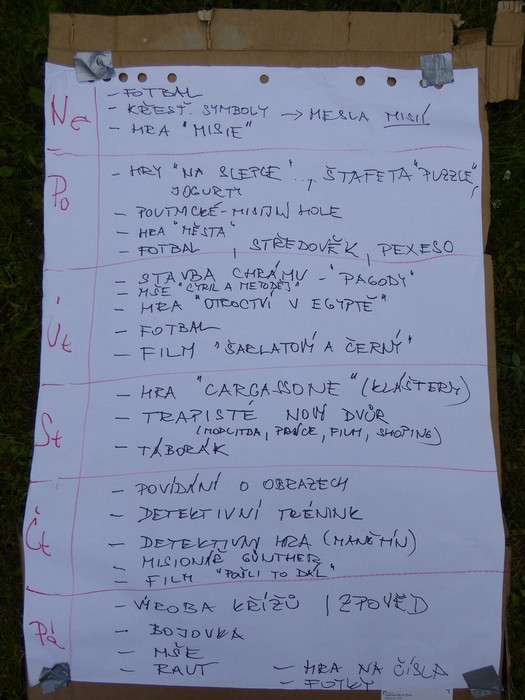 Ne
- FOTBAL
- KŘESŤ. SYMBOLY → HESLA MISIÍ
- HRA "MISIE"
Po
- HRY "NA SLEPCE"..., ŠTAFETA "PUZZLE",
JOGURTY
- POUTNICKÉ-MISIJNÍ HOLE
- HRA "MĚSTA"
- FOTBAL, STŘEDOVĚK, PEXESO
Út
- STAVBA CHRÁMU - "PAGODY"
- MŠE "CYRIL A METODĚJ"
- HRA "OTROCTVÍ V EGYPTĚ"
- FOTBAL
- FILM "ŠARLATOVÝ A ČERNÝ"
St
- HRA "CARGASSONE" (KLÁŠTERY)
- TRAPISTÉ NOVÝ DVŮR
(MODLITBA, PRÁCE, FILM, SHOPING)
- TÁBORÁK
Čt
- POVÍDÁNÍ O OBRAZECH
- DETEKTIVNÍ TRÉNINK
- DETEKTIVNÍ HRA (MANĚTÍN)
- MISIONÁŘ GÜNTHER
- FILM "POŠLI TO DÁL"
Pá
- VÝROBA KŘÍŽŮ, ZPOVĚD
- BOJOVKA
- MŠE
- RAUT - HRA NA ČÍSLA
- FOTKY